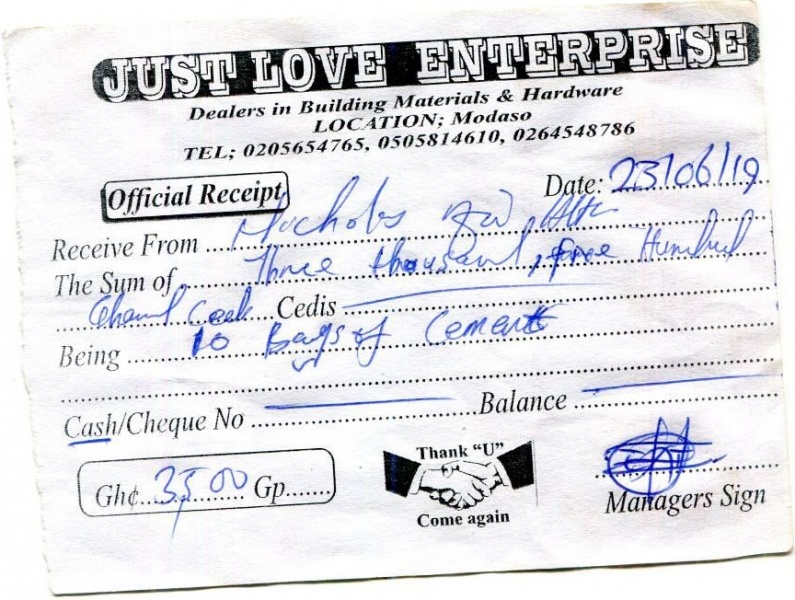 JUST LOVE ENTERPRISE
Dealers in Building Materials & Hardware
LOCATION; Modaso
TEL; 0205654765, 0505814610, 0264548786
Official Receipt
Date: 23/06/19
Receive From
The Sum of Three thousand, five Hundred
Ghana Cedis
Being 10 Bags of Cement
Cash/Cheque No Balance
Gh¢ 3500 Gp
Thank "U"
Come again
Managers Sign